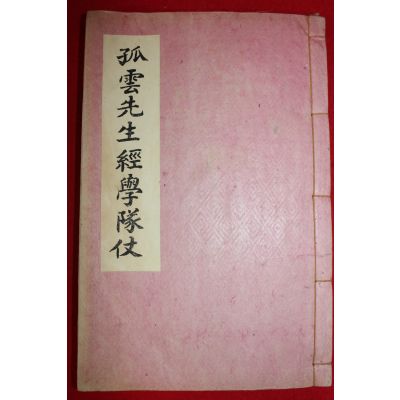 孤雲先生經學隊仗